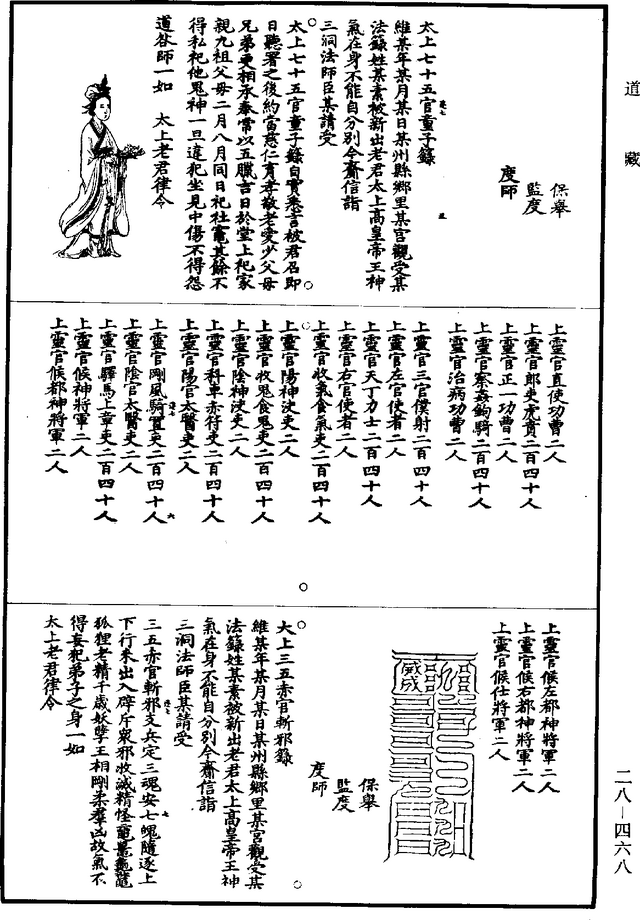 道藏
保舉
監度
度師
太上七十五官童子籙
維某年某月某日某州縣鄉里某宮觀受某
法籙姓某素被新出老君太上高皇帝王神
氣在身不能自分別今齎信詣
三洞法師臣某請受
太上七十五官童子籙自實悉言被君召即
日聽署之後約當慈仁育孝敬老愛少父母
兄弟更相承奉常以五臘吉日於堂上祀家
親九祖父母二月八月同日祀社竈其餘不
得私祀他鬼神一旦違犯坐見中傷不得怨
道咎師一如 太上老君律令
上靈官直使功曹二人
上靈官郎吏虎賁二百四十人
上靈官正一功曹二人
上靈官察姦鉤騎二百四十人
上靈官治病功曹二人
上靈官三官僕射二百四十人
上靈官左官使者二人
上靈官天丁力士二百四十人
上靈官右官使者二人
上靈官收氣食氣吏二百四十人
上靈官陽神決吏二人
上靈官收鬼食鬼吏二百四十人
上靈官陰神決吏二人
上靈官科車赤符吏二百四十人
上靈官陽官太醫吏二人
上靈官剛風騎置吏二百四十人
上靈官陰官太醫吏二人
上靈官驛馬上章吏二百四十人
上靈官候神將軍二人
上靈官候都神將軍二人
上靈官候左都神將軍二人
上靈官候右都神將軍二人
上靈官候仕將軍二人
保舉
監度
度師
太上三五赤官斬邪籙
維某年某月某日某州縣鄉里某宮觀受某
法籙姓某素被新出老君太上高皇帝王神
氣在身不能自分別今齎信詣
三洞法師臣某請受
三五赤官斬邪支兵定三魂安七魄隨逐上
下行來出入辟斥眾邪收滅精怪黿鼉龜鼈
狐狸老精千歲妖孽王相剛柔群凶故氣不
得妄犯弟子之身一如
太上老君律令
二八—四六八